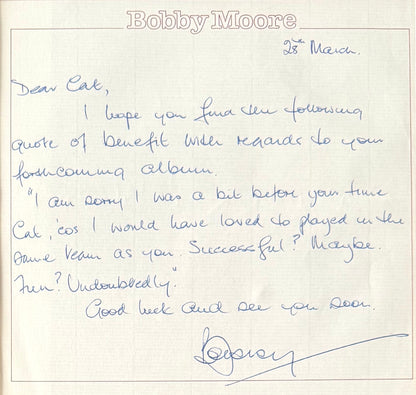 Bobby Moore
28th March.
Dear Cat,
I hope you find the following
quote of benefit with regards to your
forthcoming album.
"I am sorry I was a bit before your time
Cat, 'cos I would have loved to played in the
same team as you. Successful? Maybe.
Fun? Undoubtedly".
Good luck and see you soon.
Bobby